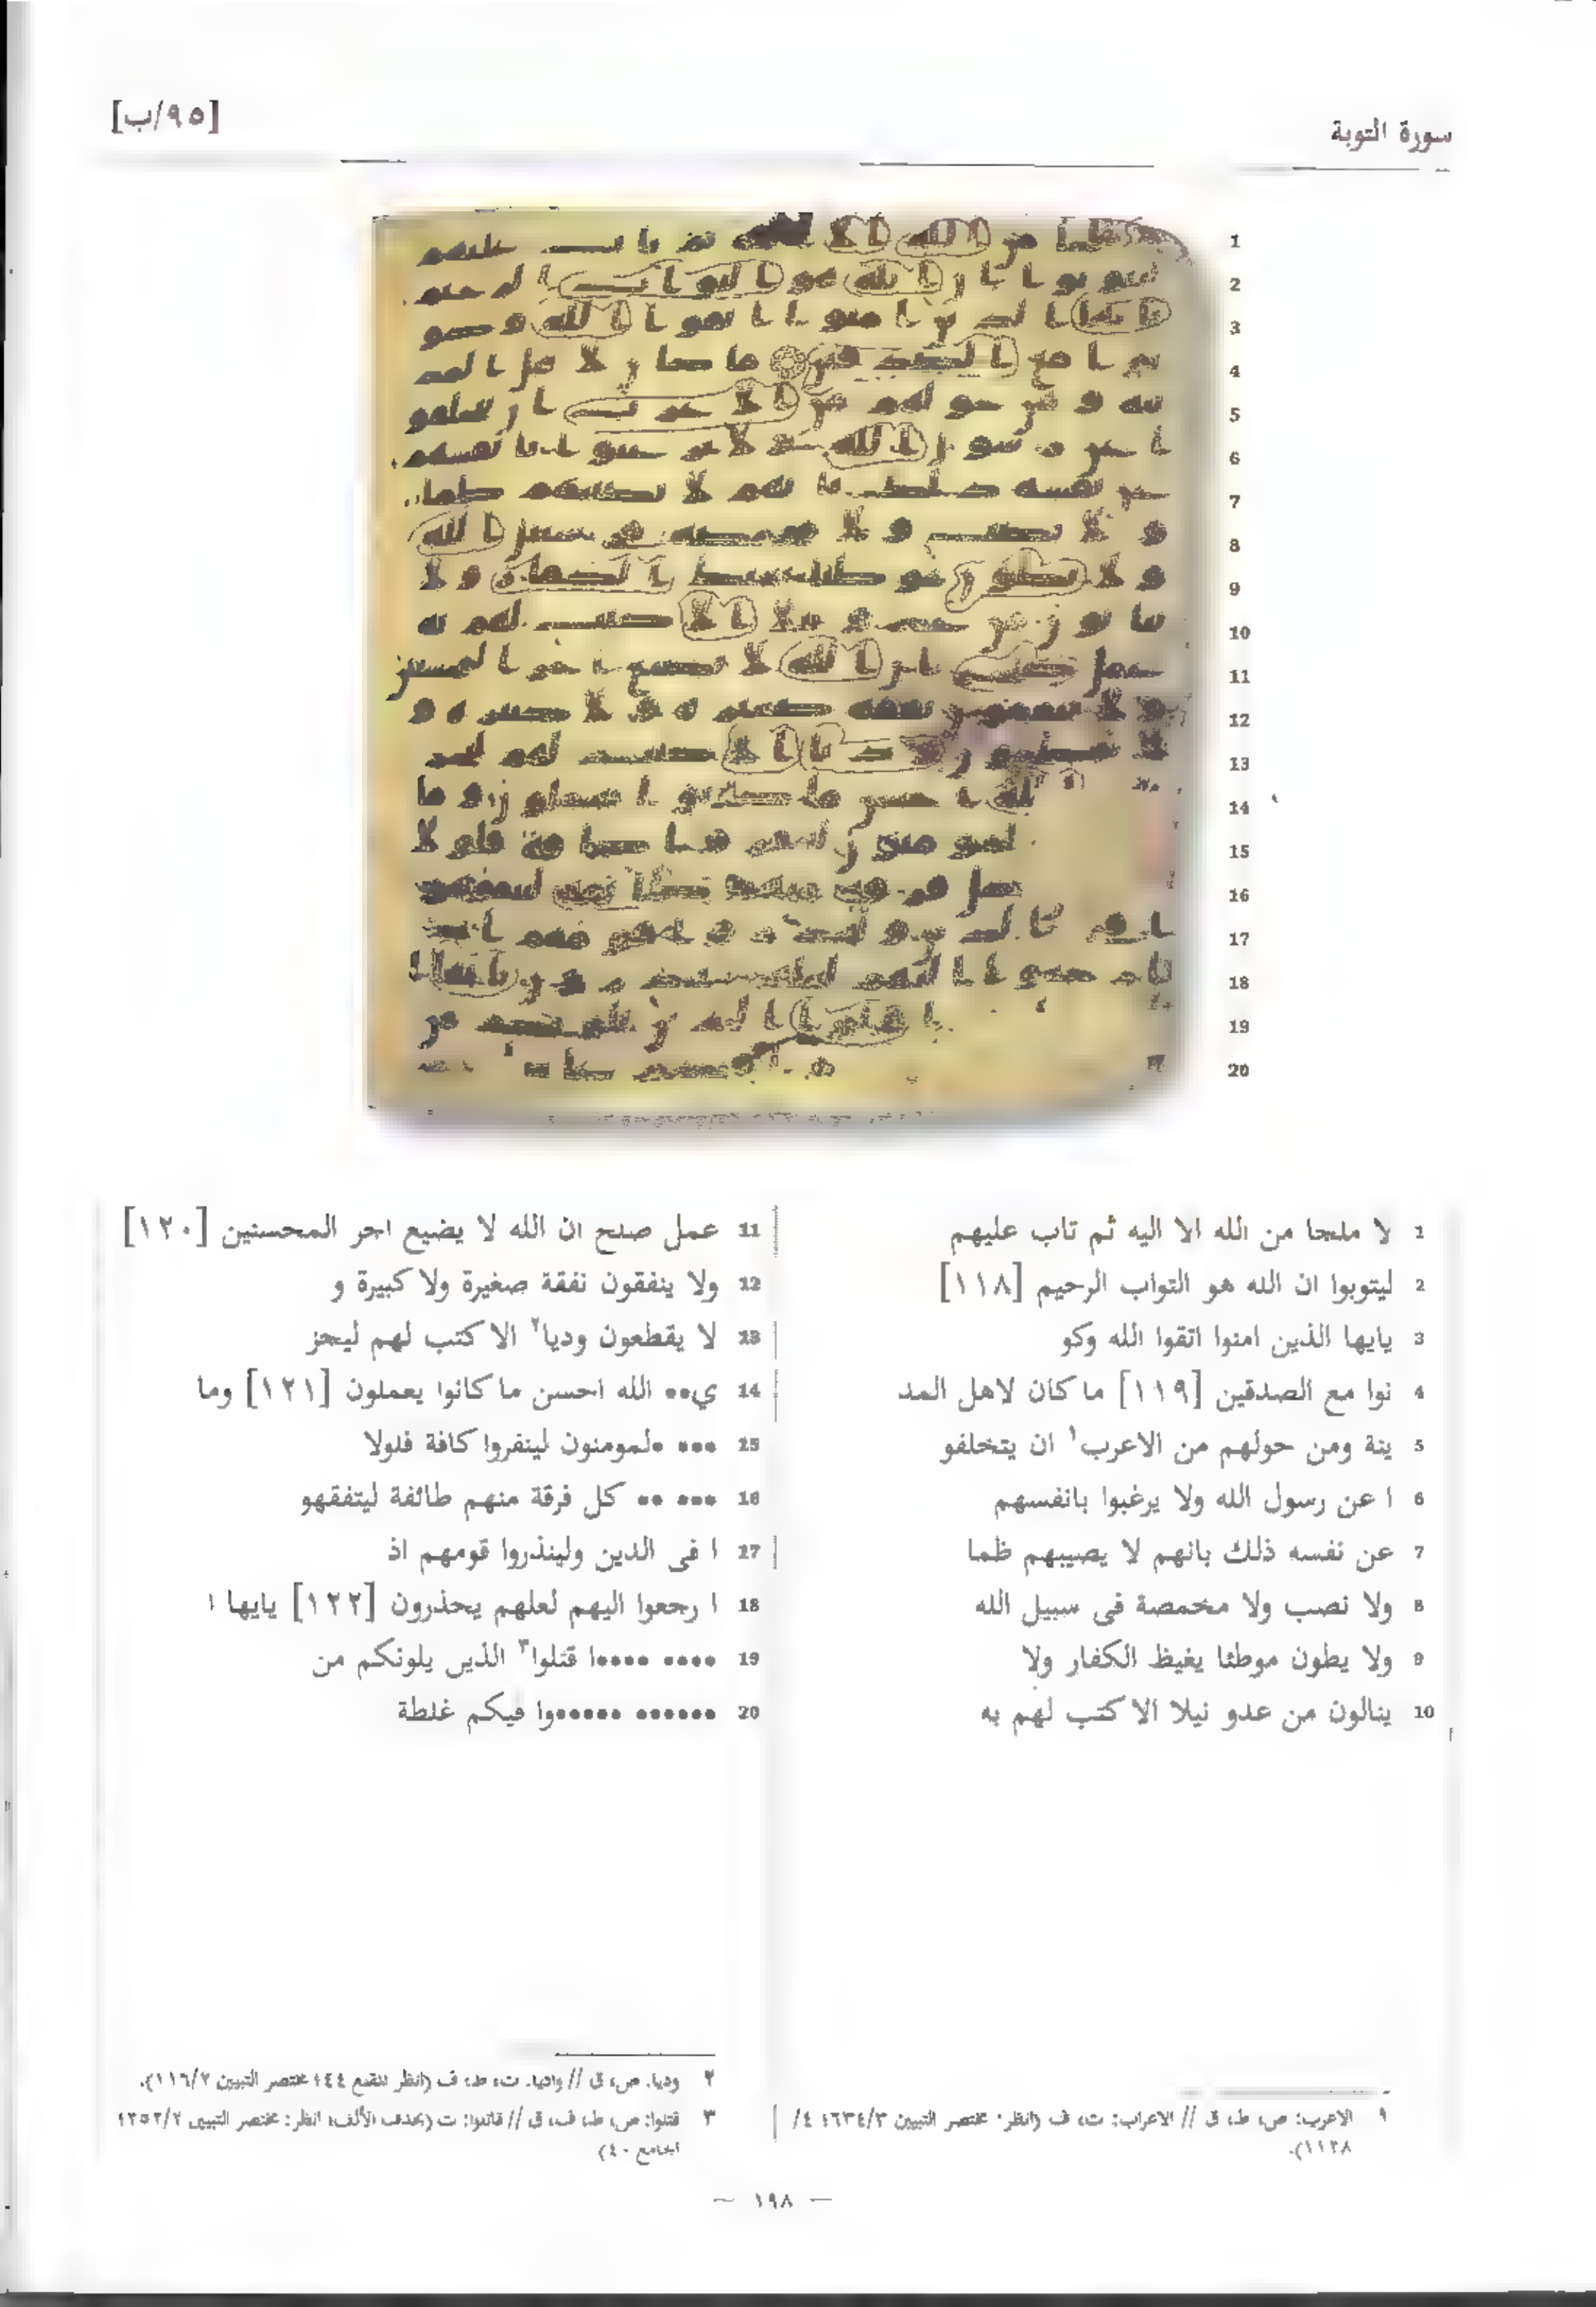 سورة التوبة
[٩٥/ب]
1 لا ملجا من الله الا اليه ثم تاب عليهم
2 ليتوبوا ان الله هو التواب الرحيم [١١٨]
3 يايها الذين امنوا اتقوا الله وكو
4 نوا مع الصدقين [١١٩] ما كان لاهل المد
5 ينة ومن حولهم من الاعرب١ ان يتخلفو
6 ا عن رسول الله ولا يرغبوا بانفسهم
7 عن نفسه ذلك بانهم لا يصيبهم ظما
8 ولا نصب ولا مخمصة فى سبيل الله
9 ولا يطون موطئا يغيظ الكفار ولا
10 ينالون من عدو نيلا الا كتب لهم به
11 عمل صلح ان الله لا يضيع اجر المحسنين [١٢٠]
12 ولا ينفقون نفقة صغيرة ولا كبيرة و
13 لا يقطعون وديا٢ الا كتب لهم ليجز
14 ي•• الله احسن ما كانوا يعملون [١٢١] وما
15 ••• •لمومنون لينفروا كافة فلولا
16 ••• •• كل فرقة منهم طائفة ليتفقهو
17 ا فى الدين ولينذروا قومهم اذ
18 ا رجعوا اليهم لعلهم يحذرون [١٢٢] يايها ا
19 •••• ••••ا قتلوا٣ الذين يلونكم من
20 •••••• ••••••وا فيكم غلظة
١ الاعرب: ص، ط، ق // الاعراب: ت، ف (انظر: مختصر التبيين ٦٣٤/٣؛ ٤/
١١٣٨).
٢ وديا. ص، ق // واديا. ت، ط، ف (انظر المقنع ٤٤؛ مختصر التبيين ١١٦/٢).
٣ قتلوا: ص، ط، ف، ق // قاتلوا: ت (بحذف الألف، انظر: مختصر التبيين ٢٥٢/٢؛
الجامع ٤٠)
— ١٩٨ —